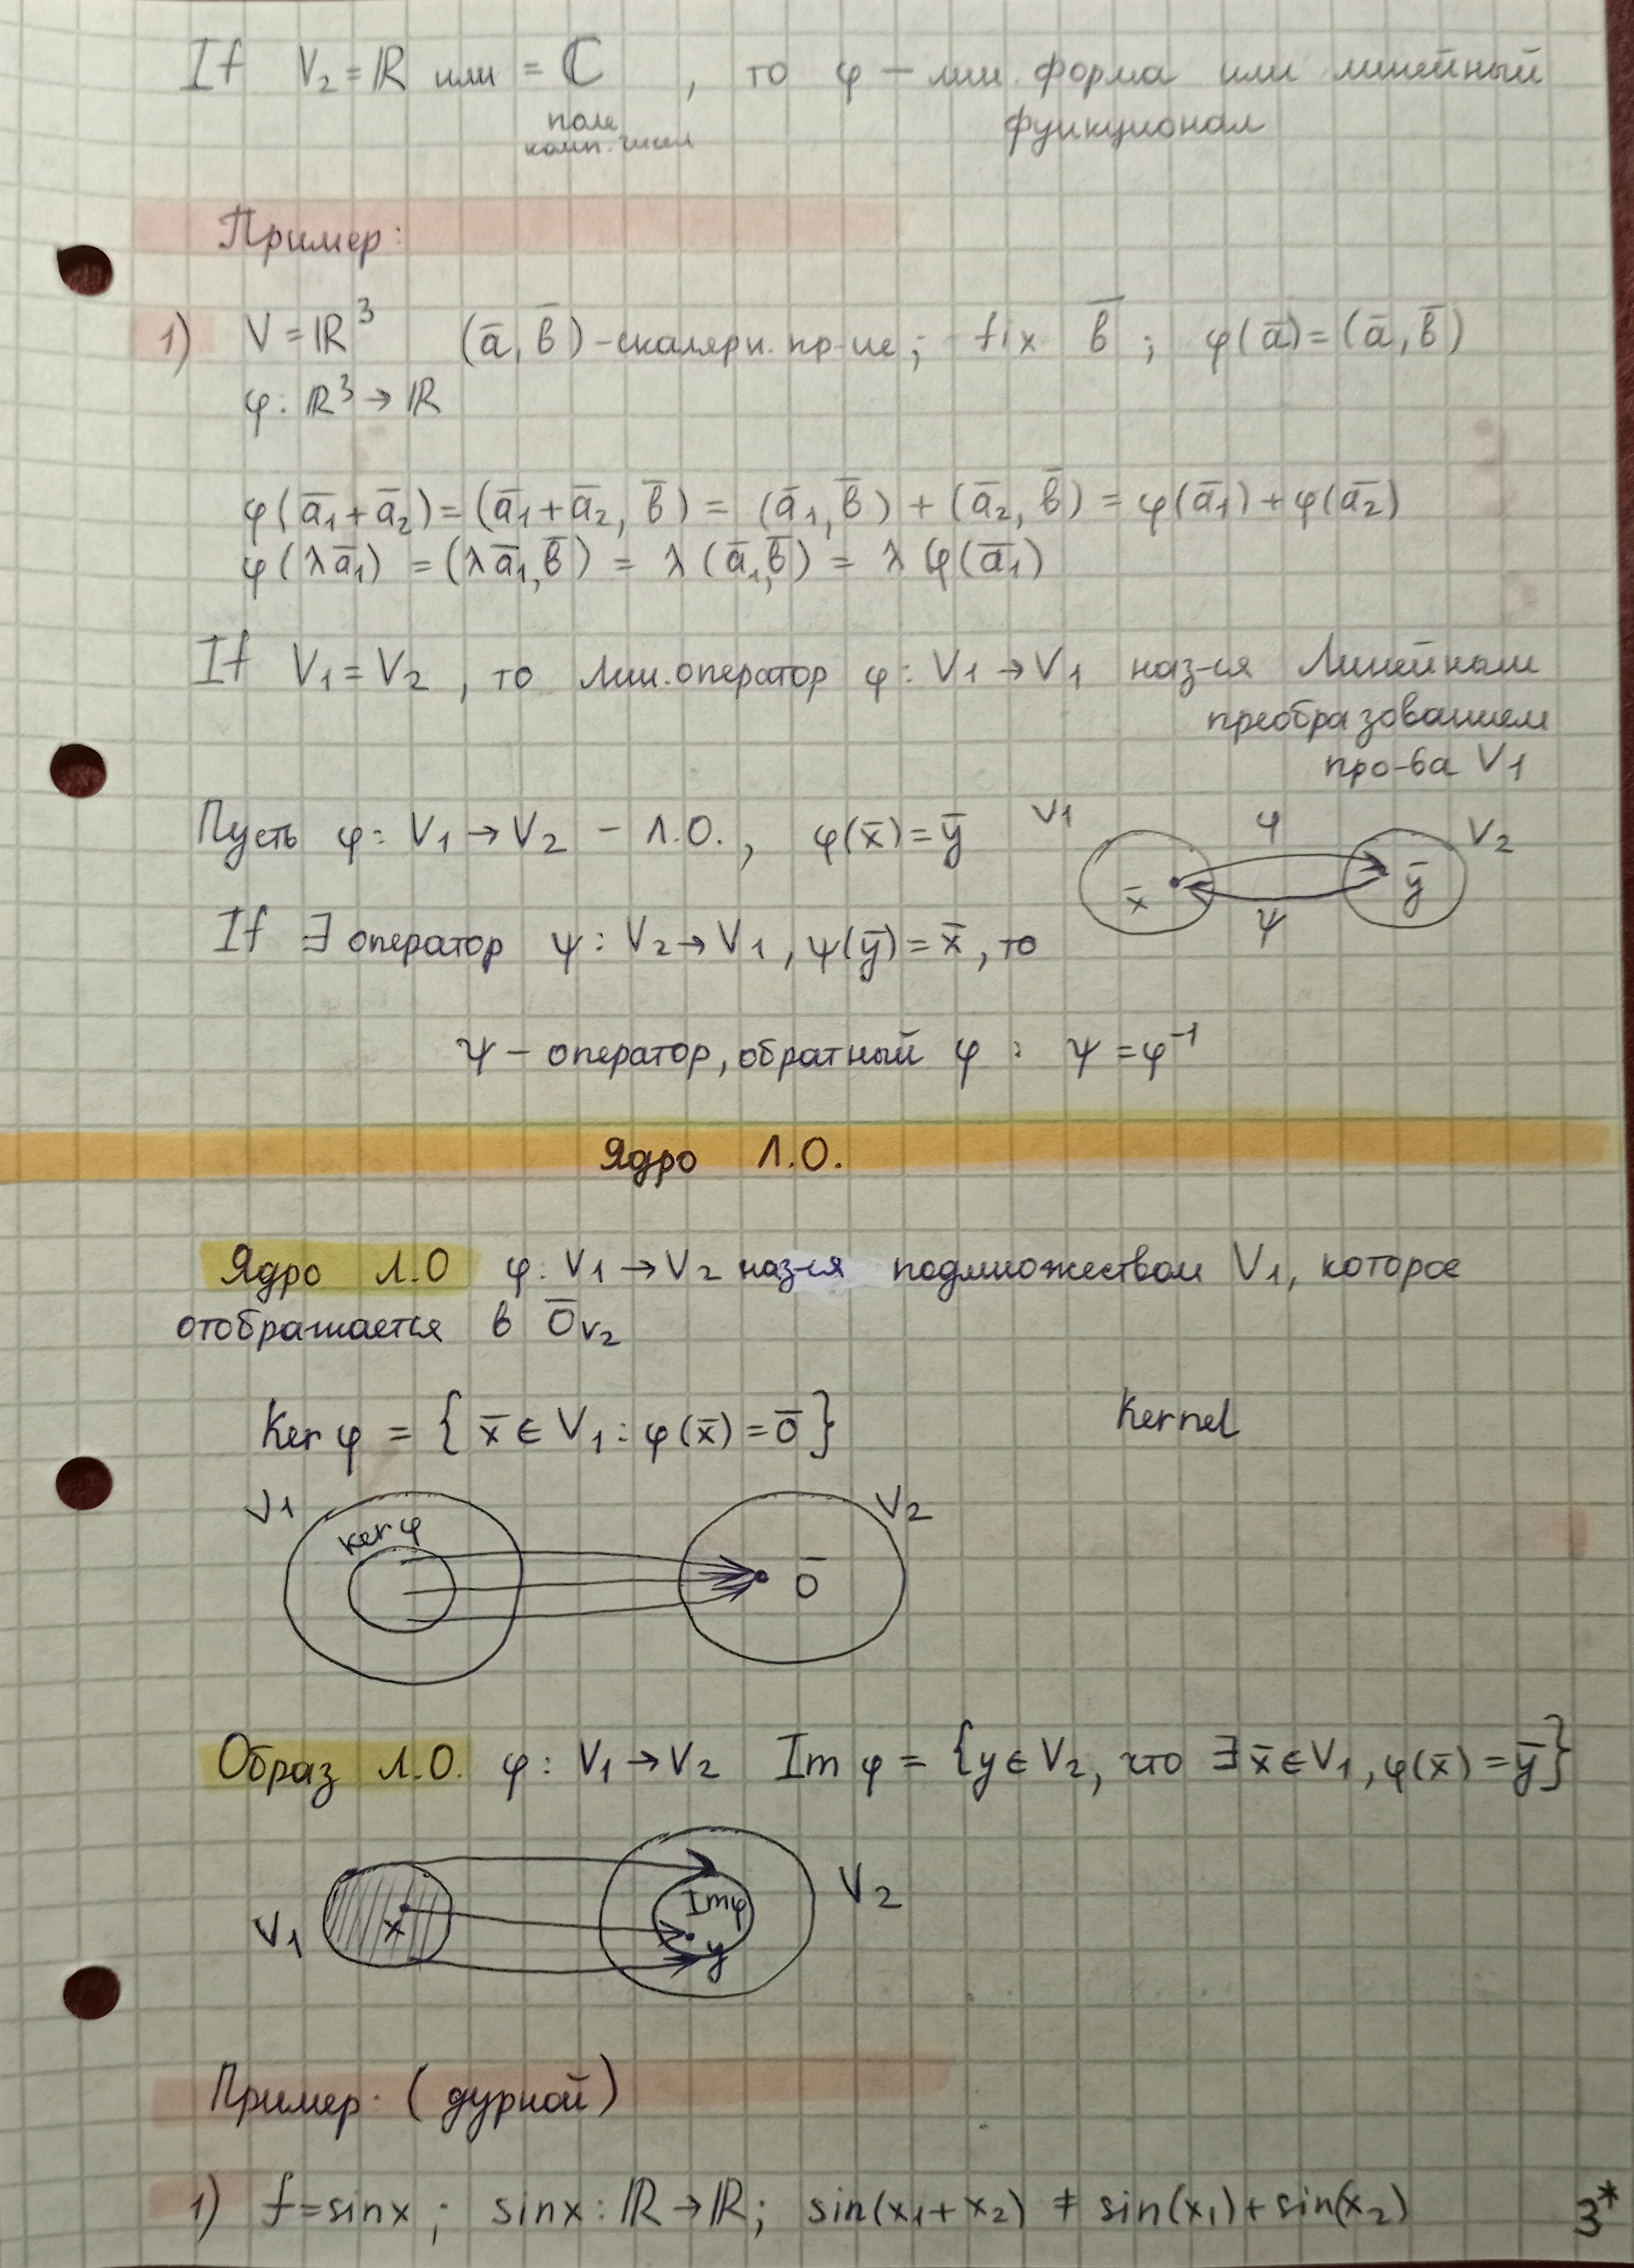 If V₂ = ℝ или = ℂ , то φ – лин. форма или линейный
поле
комп. чисел
функционал
Пример:
1) V = ℝ³ (a̅, b̅) – скалярн. пр-ие; fix b̅ ; φ(a̅) = (a̅, b̅)
φ: ℝ³ → ℝ
φ(a̅₁ + a̅₂) = (a̅₁ + a̅₂, b̅) = (a̅₁, b̅) + (a̅₂, b̅) = φ(a̅₁) + φ(a̅₂)
φ(λa̅₁) = (λa̅₁, b̅) = λ(a̅₁, b̅) = λφ(a̅₁)
If V₁ = V₂ , то лин. оператор φ: V₁ → V₁ наз-ся Линейным
преобразованием
про-ва V₁
Пусть φ: V₁ → V₂ – Л.О., φ(x̅) = y̅
V₁ φ V₂
x̅ y̅
ψ
If ∃ оператор ψ: V₂ → V₁, ψ(y̅) = x̅, то
ψ – оператор, обратный φ : ψ = φ⁻¹
Ядро Л.О.
Ядро Л.О φ: V₁ → V₂ наз-ся подмножеством V₁, которое
отображается в 0̅ᵥ₂
Ker φ = { x̅ ∈ V₁ : φ(x̅) = 0̅ } Kernel
V₁ ker φ V₂
0̅
Образ Л.О. φ: V₁ → V₂ Im φ = {y ∈ V₂, что ∃ x̅ ∈ V₁, φ(x̅) = y̅}
V₁ x Imφ y V₂
Пример: (дурной)
1) f = sinx ; sinx: ℝ → ℝ; sin(x₁ + x₂) ≠ sin(x₁) + sin(x₂) 3*